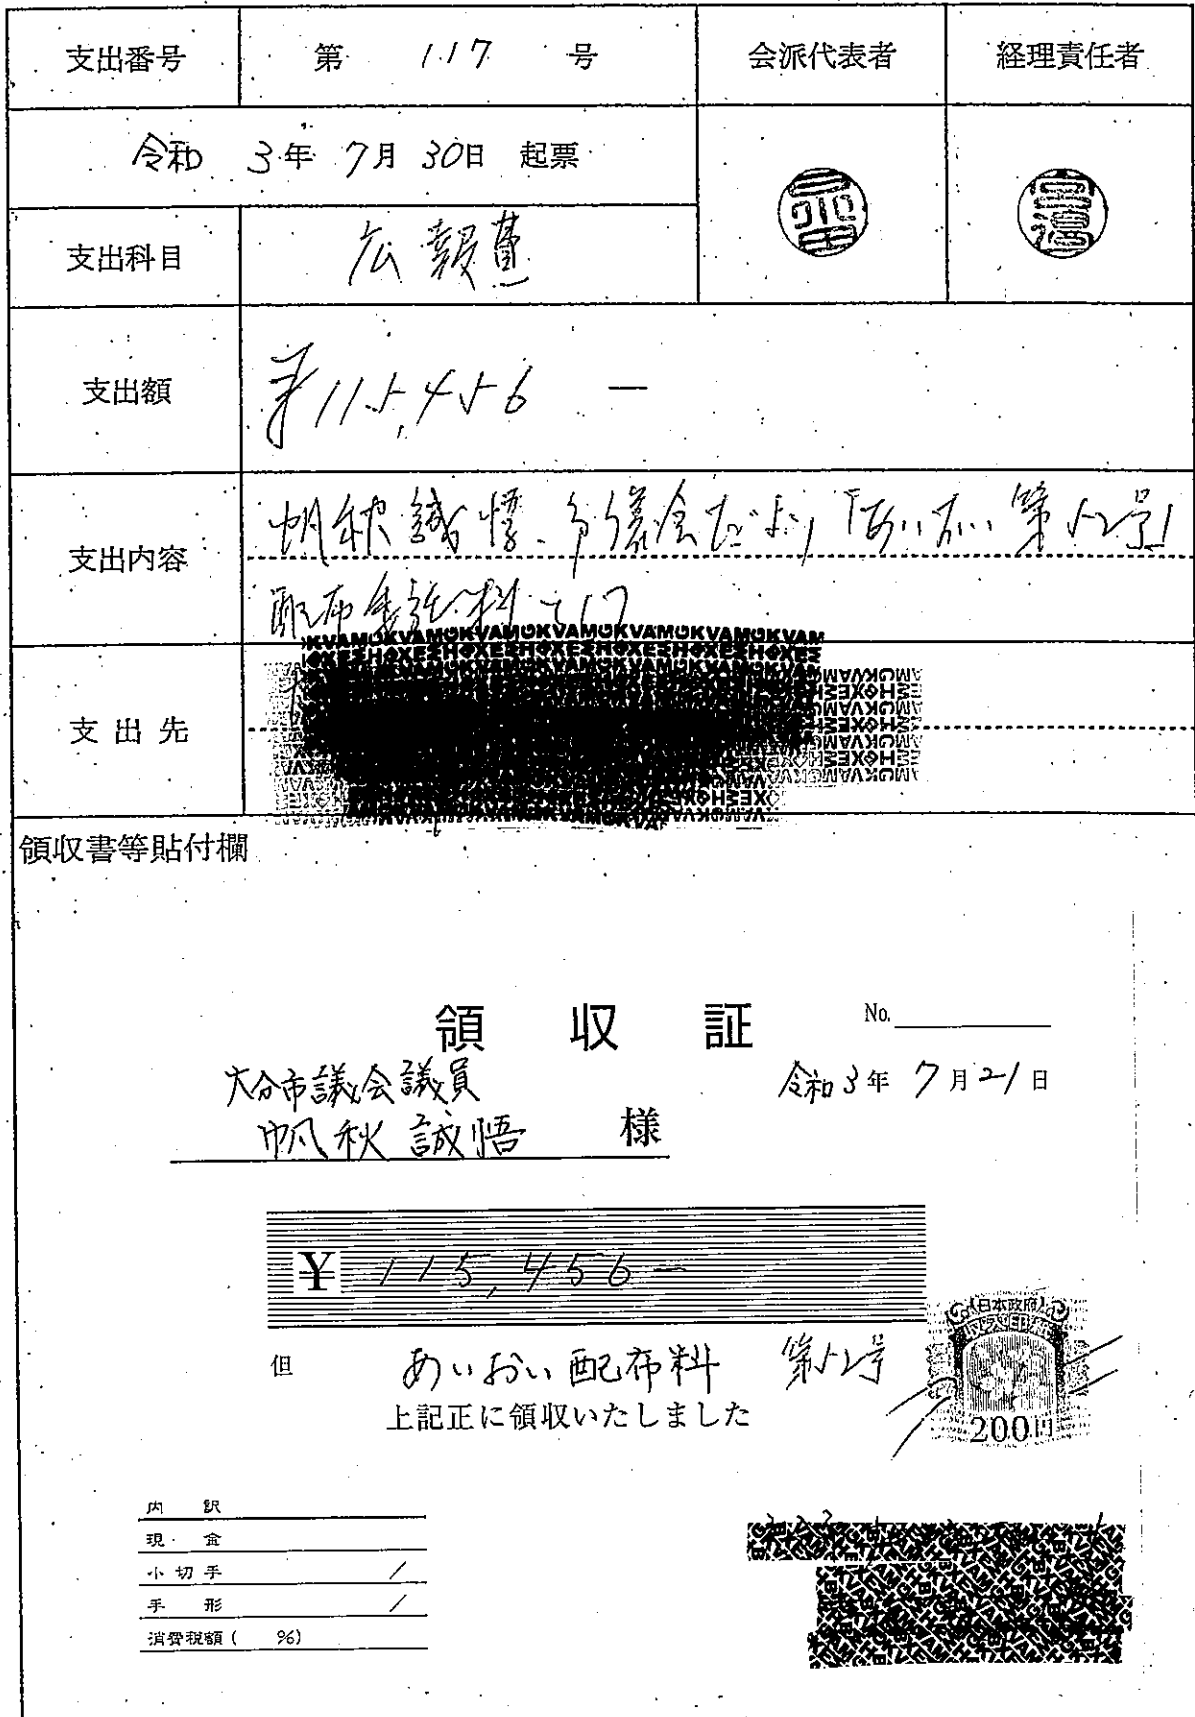 支出番号 第 117 号 会派代表者 経理責任者
令和 3年 7月 30日 起票
支出科目 広報費
支出額 ¥115,456 ―
支出内容 帆秋誠悟、市議会だより「あいおい第52号」
配布委託料として
支出先
領収書等貼付欄
領収証 No.
大分市議会議員
令和3年 7月21日
帆秋誠悟 様
¥ 115,456―
日本政府
収入印紙
但 あいおい配布料 第52号
上記正に領収いたしました
200円
内訳
現金
小切手 /
手形 /
消費税額 ( %)